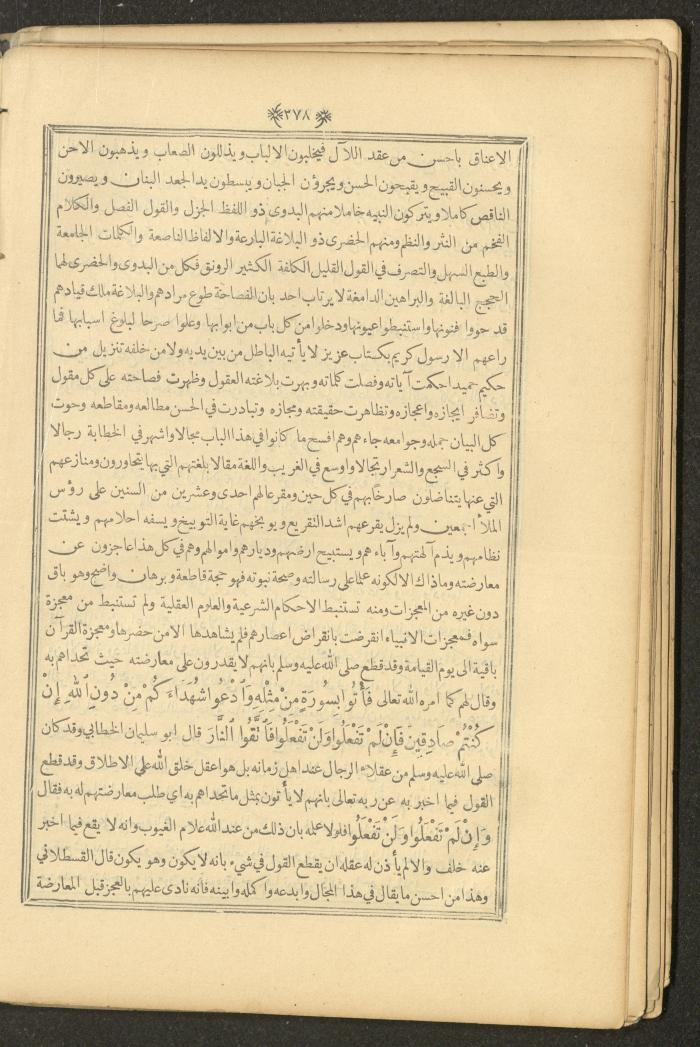 ٣٧٨
الاعناق باحسن من عقد اللآل فيخلبون الالباب ويذللون الصعاب ويذهبون الاحن
ويحسنون القبيح ويقبحون الحسن ويجرؤن الجبان ويبسطون يد الجعد البنان ويصيرون
الناقص كاملا ويتركون النبيه خاملا منهم البدوى ذو اللفظ الجزل والقول الفصل والكلام
الفخم من النثر والنظم ومنهم الحضرى ذو البلاغة البارعة والالفاظ الناصعة والكلمات الجامعة
والطبع السهل والتصرف في القول القليل الكلفة الكثير الرونق فكل من البدوى والحضرى لهما
الحجج البالغة والبراهين الدامغة لا يرتاب احد بان الفصاحة طوع مرادهم والبلاغة ملك قيادهم
قد حووا فنونها واستنبطوا عيونها ودخلوا من كل باب من ابوابها وعلوا صرحا لبلوغ اسبابها فما
راعهم الا رسول كريم بكتاب عزيز لا يأتيه الباطل من بين يديه ولا من خلفه تنزيل من
حكيم حميد احكمت آياته وفصلت كلماته وبهرت بلاغته العقول وظهرت فصاحته على كل مقول
وتضافر ايجازه واعجازه وتظاهرت حقيقته ومجازه وتبادرت في الحسن مطالعه ومقاطعه وحوت
كل البيان جمله وجوامعه جاءهم وهم افسح ما كانوا في هذا الباب مجالا واشهر في الخطابة رجالا
واكثر في السجع والشعر ارتجالا واوسع في الغريب واللغة مقالا بلغتهم التي بها يتحاورون ومنازعهم
التي عنها يتناضلون صارخا بهم في كل حين ومقرعا لهم احدى وعشرين من السنين على رؤس
الملأ اجمعين ولم يزل يقرعهم اشد التقريع ويوبخهم غاية التوبيخ ويسفه احلامهم ويشتت
نظامهم ويذم آلهتهم وآباءهم ويستبيح ارضهم وديارهم واموالهم وهم في كل هذا عاجزون عن
معارضته وما ذاك الا لكونه علما على رسالته وصحة نبوته فهو حجة قاطعة وبرهان واضح وهو باق
دون غيره من المعجزات ومنه تستنبط الاحكام الشرعية والعلوم العقلية ولم تستنبط من معجزة
سواه فمعجزات الانبياء انقرضت بانقراض اعصارهم فلم يشاهدها الا من حضرها ومعجزة القرآن
باقية الى يوم القيامة وقد قطع صلى الله عليه وسلم بانهم لا يقدرون على معارضته حيث تحداهم به
وقال لهم كما امره الله تعالى فَأْتُوا بِسُورَةٍ مِنْ مِثْلِهِ وَادْعُوا شُهَدَاءَكُمْ مِنْ دُونِ اللهِ إِنْ
كُنْتُمْ صَادِقِينَ فَإِنْ لَمْ تَفْعَلُوا وَلَنْ تَفْعَلُوا فَاتَّقُوا النَّارَ قال ابو سليمان الخطابي وقد كان
صلى الله عليه وسلم من عقلاء الرجال عند اهل زمانه بل هو اعقل خلق الله على الاطلاق وقد قطع
القول فيما اخبر به عن ربه تعالى بانهم لا يأتون بمثل ما تحداهم به اي طلب معارضتهم له به فقال
وَإِنْ لَمْ تَفْعَلُوا وَلَنْ تَفْعَلُوا فلولا علمه بان ذلك من عند الله علام الغيوب وانه لا يقع فيما اخبر
عنه خلف والا لم يأذن له عقله ان يقطع القول في شيء بانه لا يكون وهو يكون قال القسطلاني
وهذا من احسن ما يقال في هذا المجال وابدعه واكمله وابينه فانه نادى عليهم بالعجز قبل المعارضة